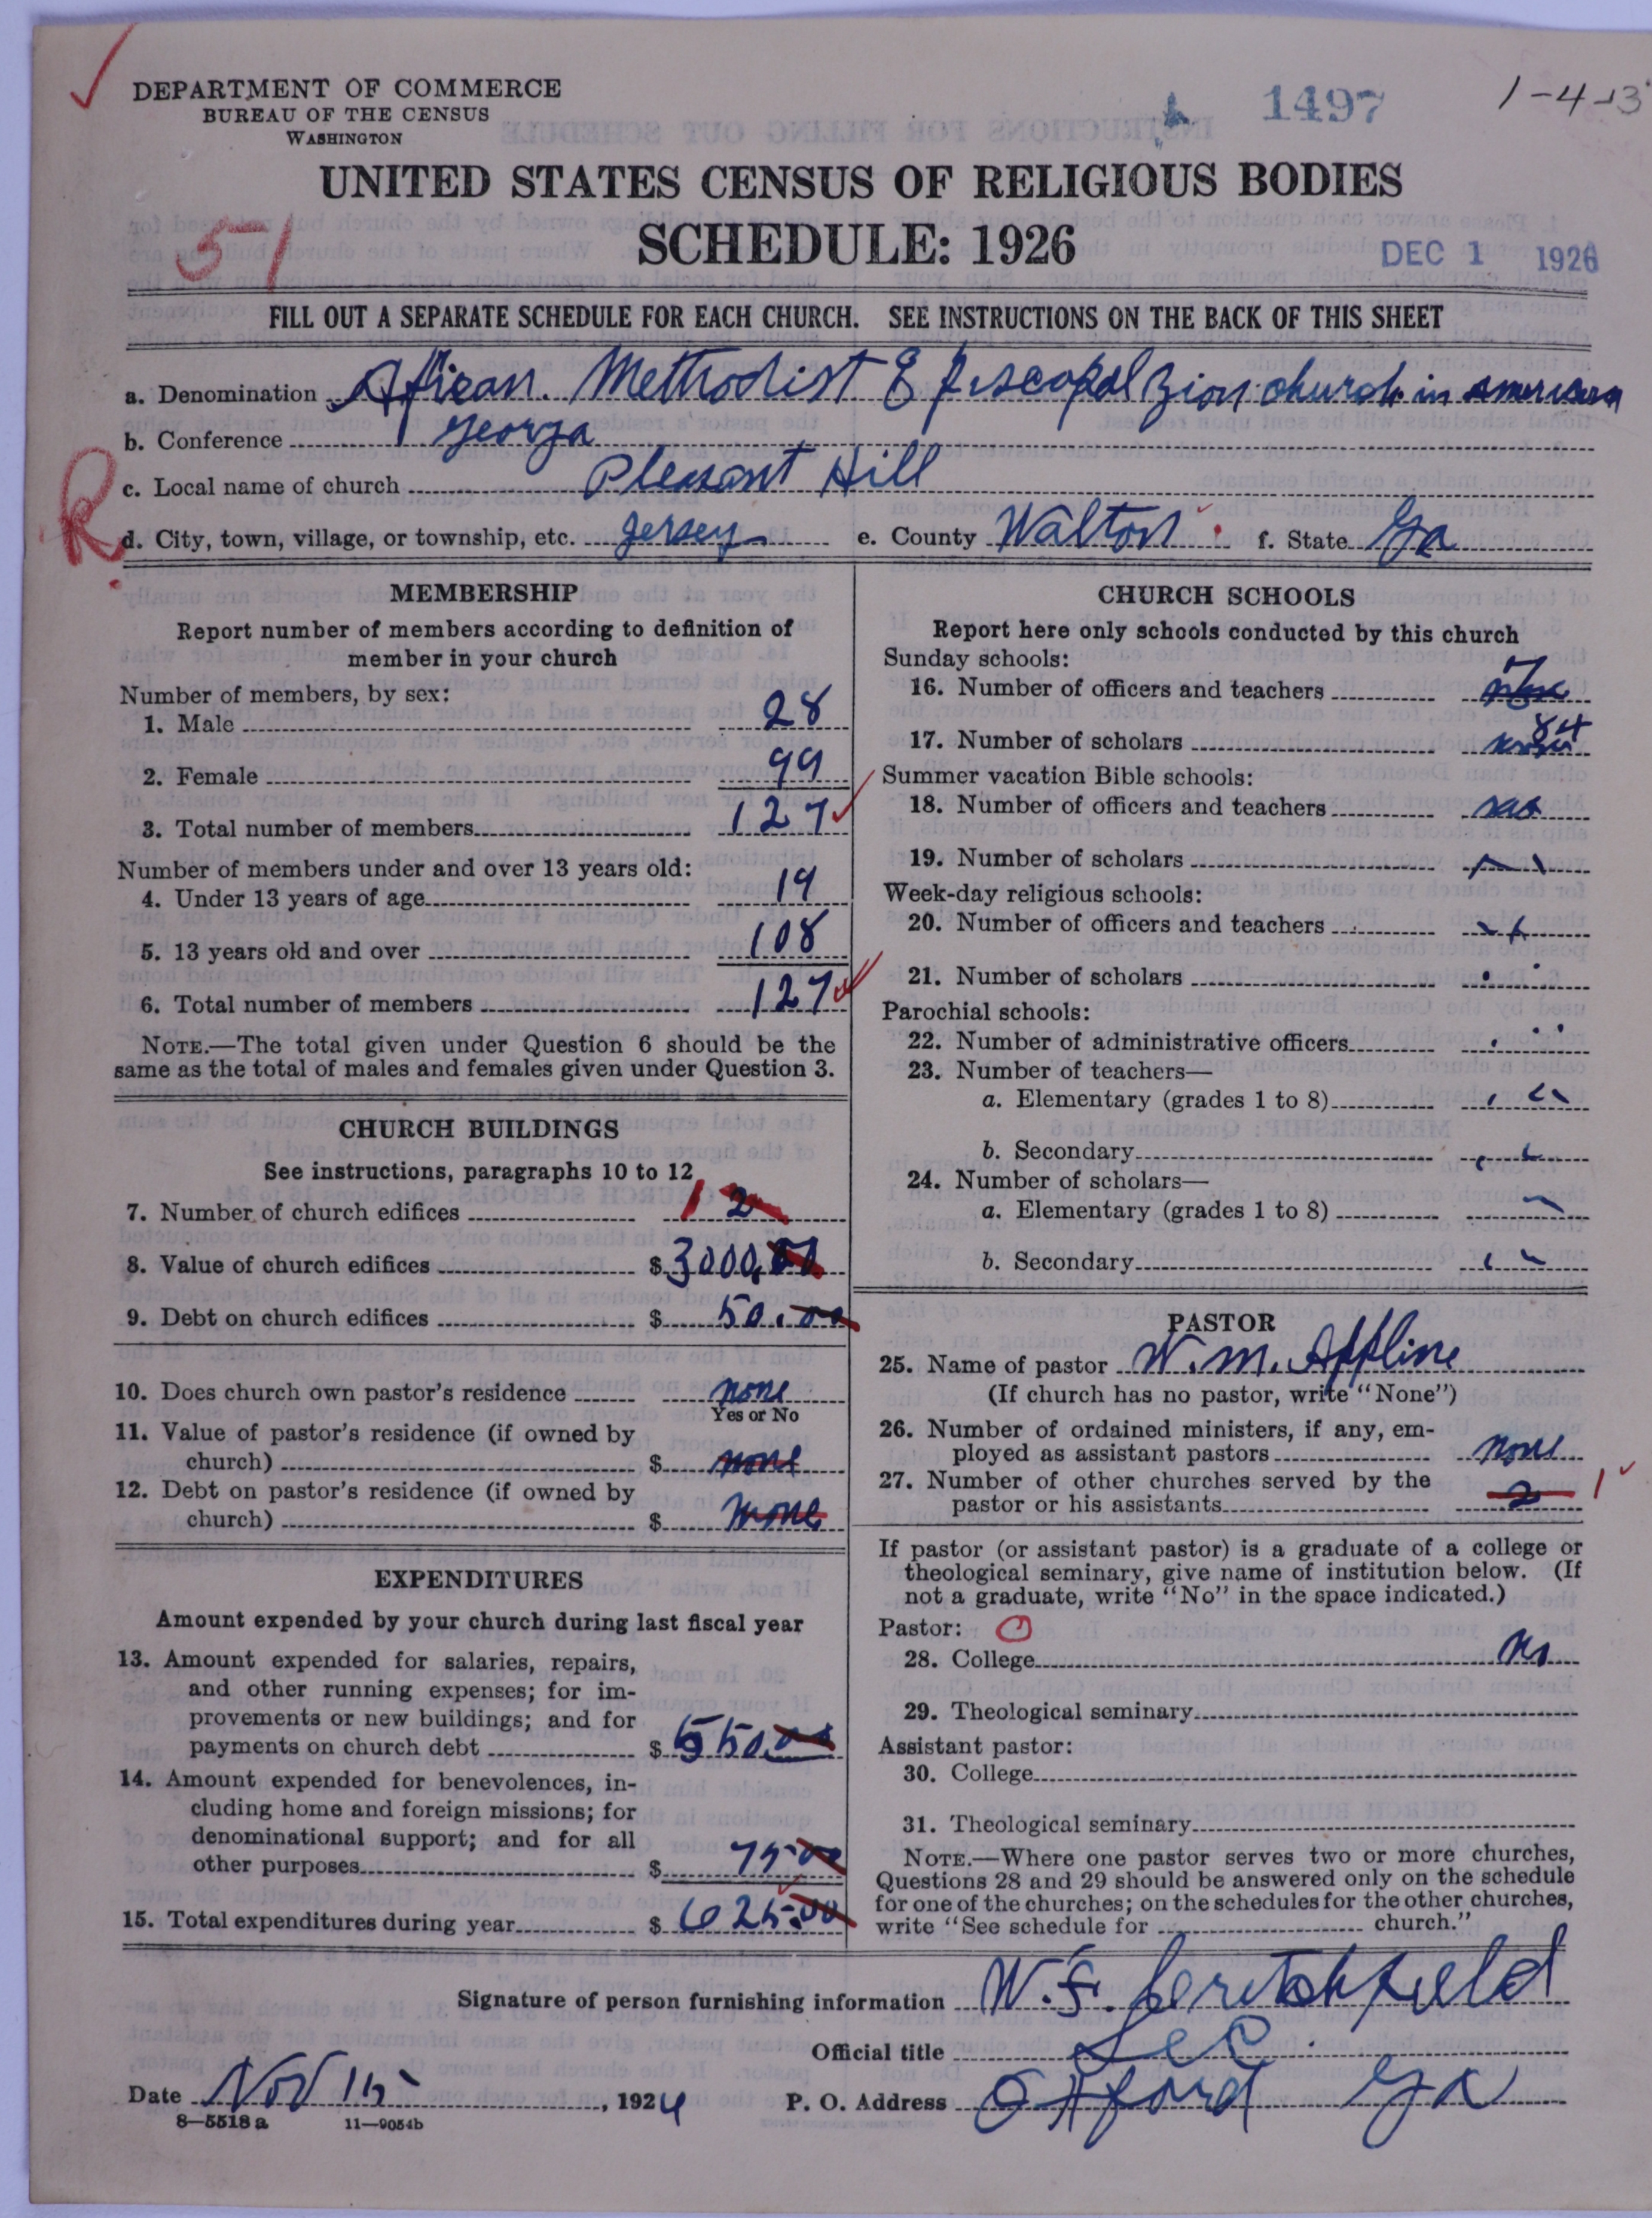 DEPARTMENT OF COMMERCE
BUREAU OF THE CENSUS
WASHINGTON
1497
1-4-13
UNITED STATES CENSUS OF RELIGIOUS BODIES
SCHEDULE: 1926
51
DEC 1 1926
FILL OUT A SEPARATE SCHEDULE FOR EACH CHURCH. SEE INSTRUCTIONS ON THE BACK OF THIS SHEET
a. Denomination African. Methodist Episcopal Zion church in
b. Conference Georga
c. Local name of church Pleasant Hill
R
d. City, town, village, or township, etc. Jersey e. County Walton f. State Ga
MEMBERSHIP
Report number of members according to definition of
member in your church
Number of members, by sex:
1. Male 28
2. Female 99
3. Total number of members 127
Number of members under and over 13 years old:
4. Under 13 years of age 19
5. 13 years old and over 108
6. Total number of members 127
NOTE.—The total given under Question 6 should be the
same as the total of males and females given under Question 3.
CHURCH BUILDINGS
See instructions, paragraphs 10 to 12
7. Number of church edifices 1 2
8. Value of church edifices $ 3000.00
9. Debt on church edifices $ 50.00
10. Does church own pastor's residence none
Yes or No
11. Value of pastor's residence (if owned by
church) $ none
12. Debt on pastor's residence (if owned by
church) $ none
EXPENDITURES
Amount expended by your church during last fiscal year
13. Amount expended for salaries, repairs,
and other running expenses; for im-
provements or new buildings; and for
payments on church debt $ 550.00
14. Amount expended for benevolences, in-
cluding home and foreign missions; for
denominational support; and for all
other purposes $ 75.00
15. Total expenditures during year $ 625.00
CHURCH SCHOOLS
Report here only schools conducted by this church
Sunday schools:
16. Number of officers and teachers 7
17. Number of scholars 84
Summer vacation Bible schools:
18. Number of officers and teachers
19. Number of scholars
Week-day religious schools:
20. Number of officers and teachers
21. Number of scholars
Parochial schools:
22. Number of administrative officers
23. Number of teachers—
a. Elementary (grades 1 to 8)
b. Secondary
24. Number of scholars—
a. Elementary (grades 1 to 8)
b. Secondary
PASTOR
25. Name of pastor W. M. Appline
(If church has no pastor, write "None")
26. Number of ordained ministers, if any, em-
ployed as assistant pastors none
27. Number of other churches served by the
pastor or his assistants 2 1
If pastor (or assistant pastor) is a graduate of a college or
theological seminary, give name of institution below. (If
not a graduate, write "No" in the space indicated.)
Pastor: O
28. College No
29. Theological seminary
Assistant pastor:
30. College
31. Theological seminary
NOTE.—Where one pastor serves two or more churches,
Questions 28 and 29 should be answered only on the schedule
for one of the churches; on the schedules for the other churches,
write "See schedule for church."
Signature of person furnishing information W. F. Critchfield
Official title Sec.
Date Nov 15, 1926 P. O. Address Oxford Ga
8—5518 a 11—9054b